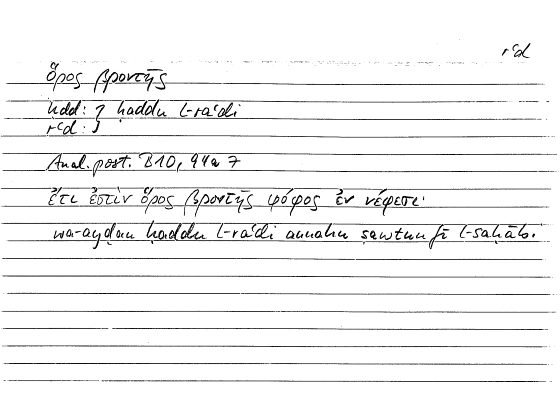 rʿd
ὅρος βροντῆς
ḥdd: } ḥaddu l-raʿdi
rʿd: }
Anal. post. B10, 94a 7
ἔτι ἐστὶν ὅρος βροντῆς ψόφος ἐν νέφεσι·
wa-ayḍan ḥaddu l-raʿdi annahu ṣawtun fī l-saḥāb.